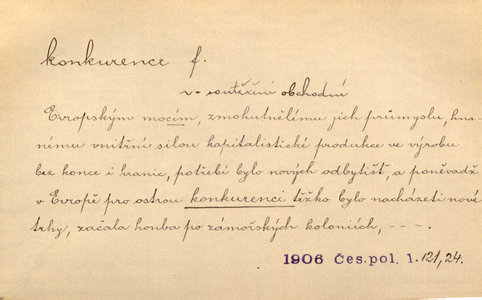 konkurence f.
v-soutěžení obchodní
Evropským mocím, zmohutnělému jich průmyslu, hna-
nému vnitřní silou kapitalistické produkce ve výrobu
bez konce i hranic, potřebí bylo nových odbytišť, a poněvadž
v Evropě pro ostrou konkurenci těžko bylo nacházeti nové
trhy, začala honba po zámořských koloniích, ---.
1906 Čes. pol. 1. 121, 24.